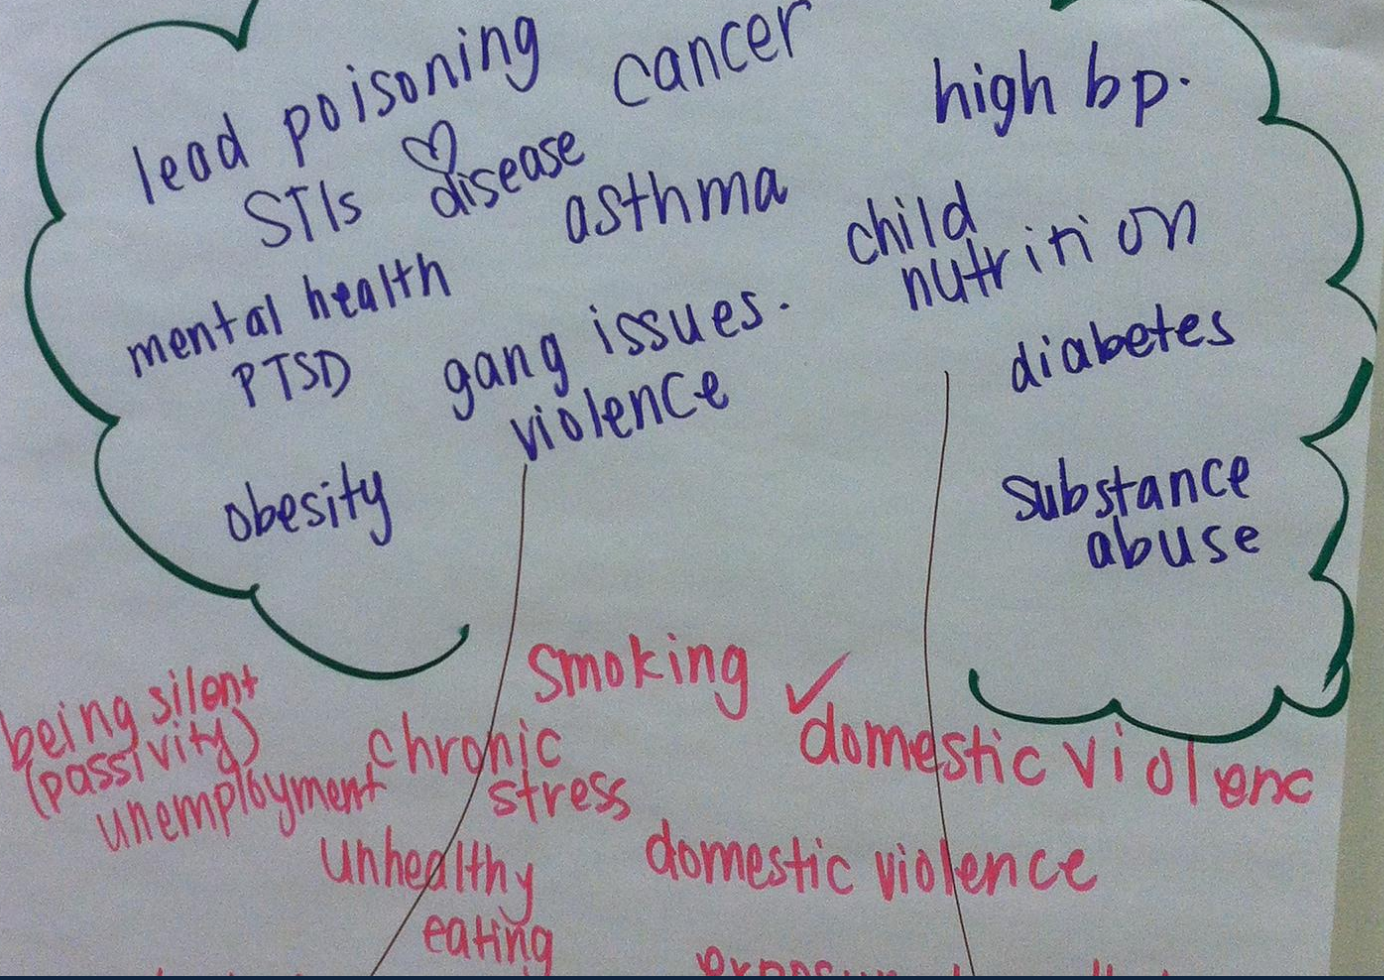 lead poisoning
cancer
high bp.
STIs
disease
asthma
child
nutrition
mental health
PTSD
gang issues.
violence
diabetes
obesity
substance
abuse
smoking
being silent
(passivity)
unemployment
chronic
stress
domestic violenc
unhealthy
eating
domestic violence